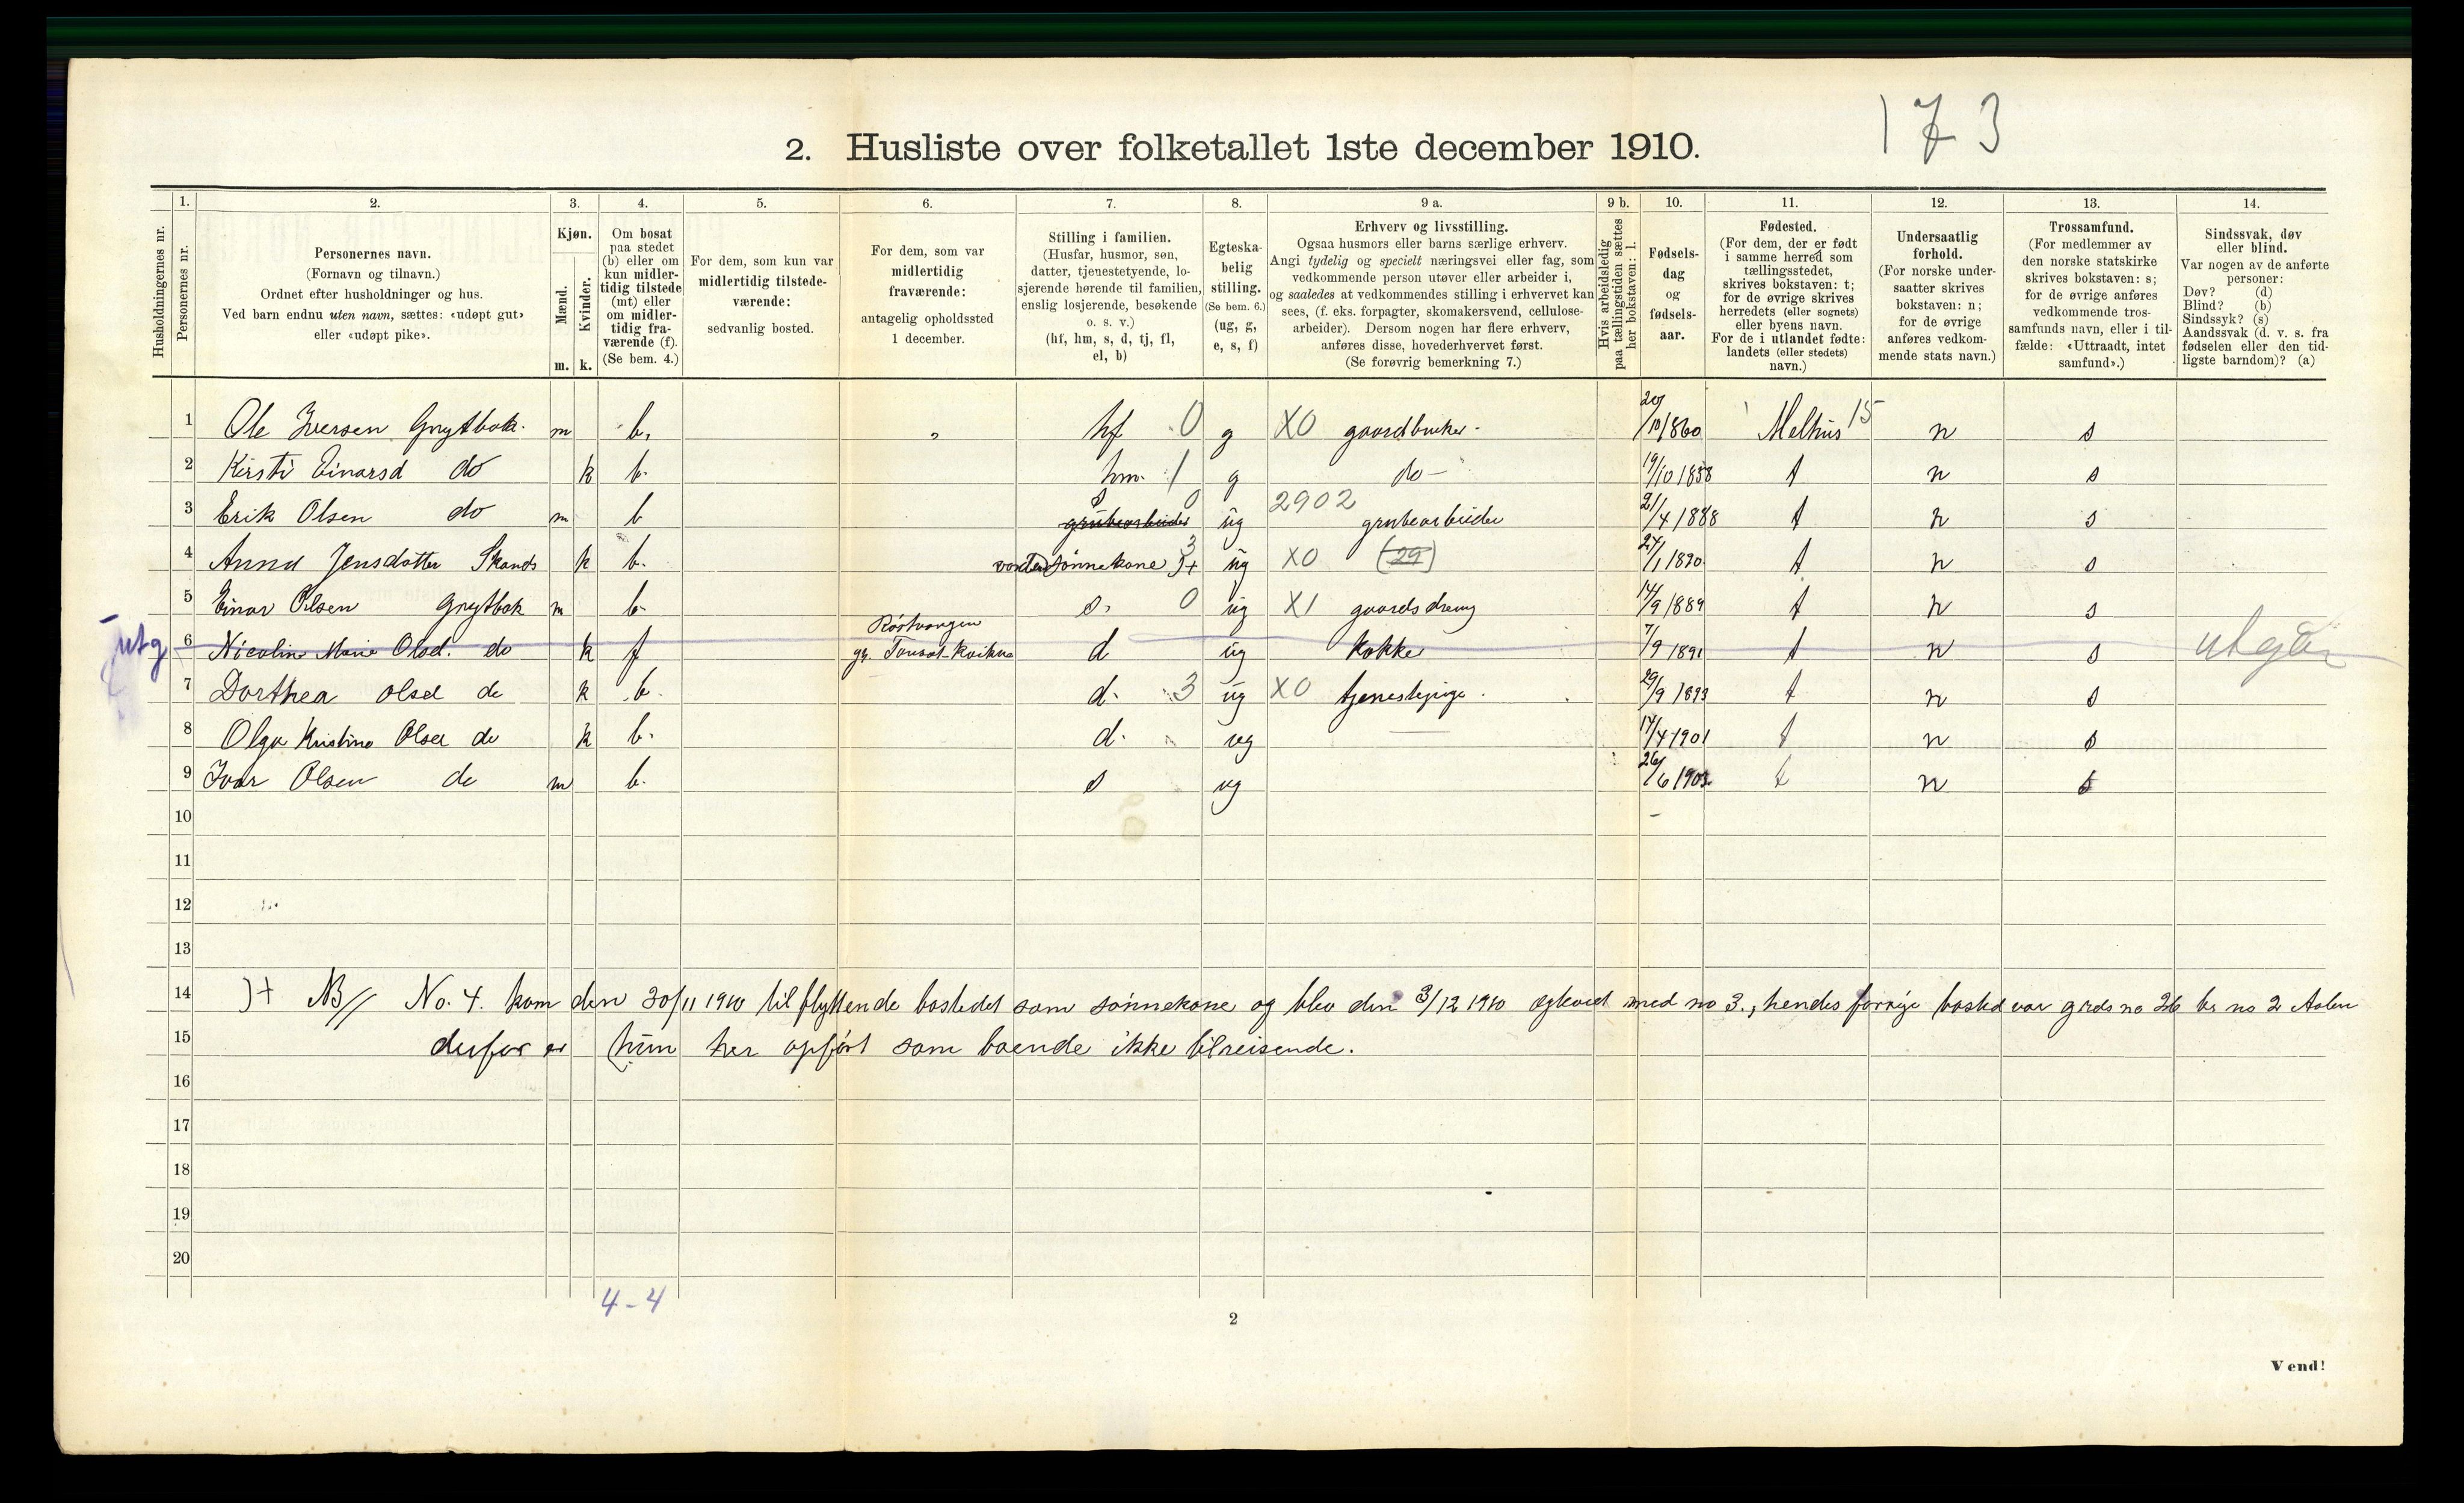 173
2. Husliste over folketallet 1ste december 1910.
Husholdningernes nr.
1. Personernes nr.
2. Personernes navn.
(Fornavn og tilnavn.)
Ordnet efter husholdninger og hus.
Ved barn endnu uten navn, sættes: «udøpt gut»
eller «udøpt pike».
3. Kjøn.
Mænd. m.
Kvinder. k.
4. Om bosat
paa stedet
(b) eller om
kun midler-
tidig tilstede
(mt) eller
om midler-
tidig fra-
værende (f).
(Se bem. 4.)
5. For dem, som kun var
midlertidig tilstede-
værende:
sedvanlig bosted.
6. For dem, som var
midlertidig
fraværende:
antagelig opholdssted
1 december.
7. Stilling i familien.
(Husfar, husmor, søn,
datter, tjenestetyende, lo-
sjerende hørende til familien,
enslig losjerende, besøkende
o. s. v.)
(hf, hm, s, d, tj, fl,
el, b)
8. Egteska-
belig
stilling.
(Se bem. 6.)
(ug, g,
e, s, f)
9 a. Erhverv og livsstilling.
Ogsaa husmors eller barns særlige erhverv.
Angi tydelig og specielt næringsvei eller fag, som
vedkommende person utøver eller arbeider i,
og saaledes at vedkommendes stilling i erhvervet kan
sees, (f. eks. forpagter, skomakersvend, cellulose-
arbeider). Dersom nogen har flere erhverv,
anføres disse, hovederhvervet først.
(Se forøvrig bemerkning 7.)
9 b. Hvis arbeidsledig
paa tællingstiden sættes
her bokstaven: l.
10. Fødsels-
dag
og
fødsels-
aar.
11. Fødested.
(For dem, der er født
i samme herred som
tællingsstedet,
skrives bokstaven: t;
for de øvrige skrives
herredets (eller sognets)
eller byens navn.
For de i utlandet fødte:
landets (eller stedets)
navn.)
12. Undersaatlig
forhold.
(For norske under-
saatter skrives
bokstaven: n;
for de øvrige
anføres vedkom-
mende stats navn.)
13. Trossamfund.
(For medlemmer av
den norske statskirke
skrives bokstaven: s;
for de øvrige anføres
vedkommende tros-
samfunds navn, eller i til-
fælde: «Uttraadt, intet
samfund».)
14. Sindssvak, døv
eller blind.
Var nogen av de anførte
personer:
Døv? (d)
Blind? (b)
Sindssyk? (s)
Aandssvak (d. v. s. fra
fødselen eller den tid-
ligste barndom)? (a)
1 Ole Iversen Grytbak m b. " hf 0 g X0 gaardbruker 20/10 1860 Melhus 15 n s
2 Kirsti Einarsd do k b. hm. 1 g do 19/10 1858 t n s
3 Erik Olsen do m b grubearbeider s 0 ug 2902 grubearbeider 21/4 1888 t n s
4 Anna Jensdatter Skands k b. vorden sønnekone 3 )+ ug X0 (29) 27/1 1890 t n s
5 Einar Olsen Grytbak m b. s. 0 ug X1 gaardsdreng 14/9 1889 t n s
utg 6 Nicoline Marie Olsd. do k f Røstvangen gr. Tønset-Kvikne d ug Kokke 7/9 1891 t n s utgår
7 Dorthea Olsd do k b. d. 3 ug X0 tjenestepige 29/9 1893 t n s
8 Olga Kristine Olsd do k b. d. ug 17/4 1901 t n s
9 Ivar Olsen do m b. s ug 26/6 1903 t n s
10
11
12
13
14 )+ NB// No. 4. kom den 30/11 1910 tilflyttende bostedet som sønnekone og blev den 3/12 1910 egteviet med no 3., hendes forrige bosted var grds no 26 br no 2 Aalen
15 derfor er hun her opført som boende ikke tilreisende.
16
17
18
19
20
4-4
2
Vend!